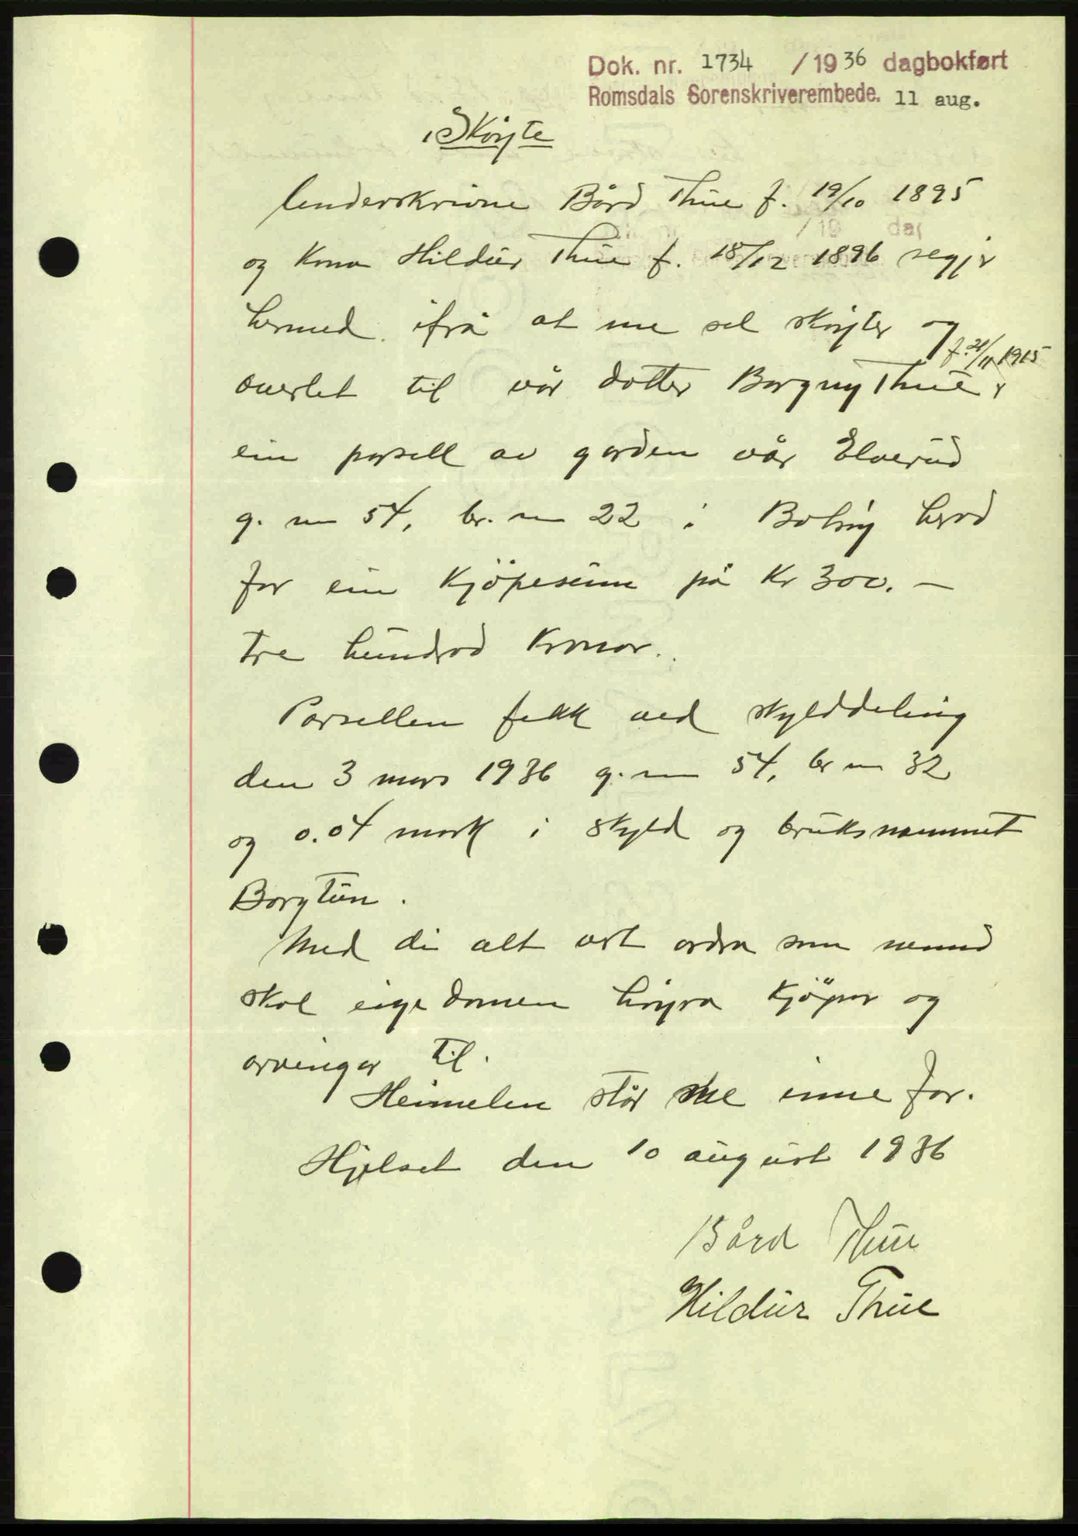 Dok. nr. 1734 /1936 dagbokført
Romsdals Sorenskriverembede. 11 aug.
Skøyte
Underskrivne Bård Thue f. 19/10 1895
og kona Hildur Thue f. 18/12 1896 segjer
hermed ifrå at me sel skøyter og
f. 21/11 1915
overlet til vår dotter Borgny Thue,
ein parsell av garden vår Elverud
g. nr 54, br. nr 22 i Bolsøy herad
for ein kjöpesum på Kr 300. —
tre hundrad kronor.
Parsellen fekk ved skylddeling
den 3 mars 1936 g. nr 54, br nr 32
og 0.04 mark i skyld og bruksnammet
Borgtun.
Med di alt art ordna som nemnd
skal eigedomen höyra kjöpar og
arvingar til.
Heimelen står me inne for.
Hjelset den 10 august 1936
Bård Thue
Hildur Thue